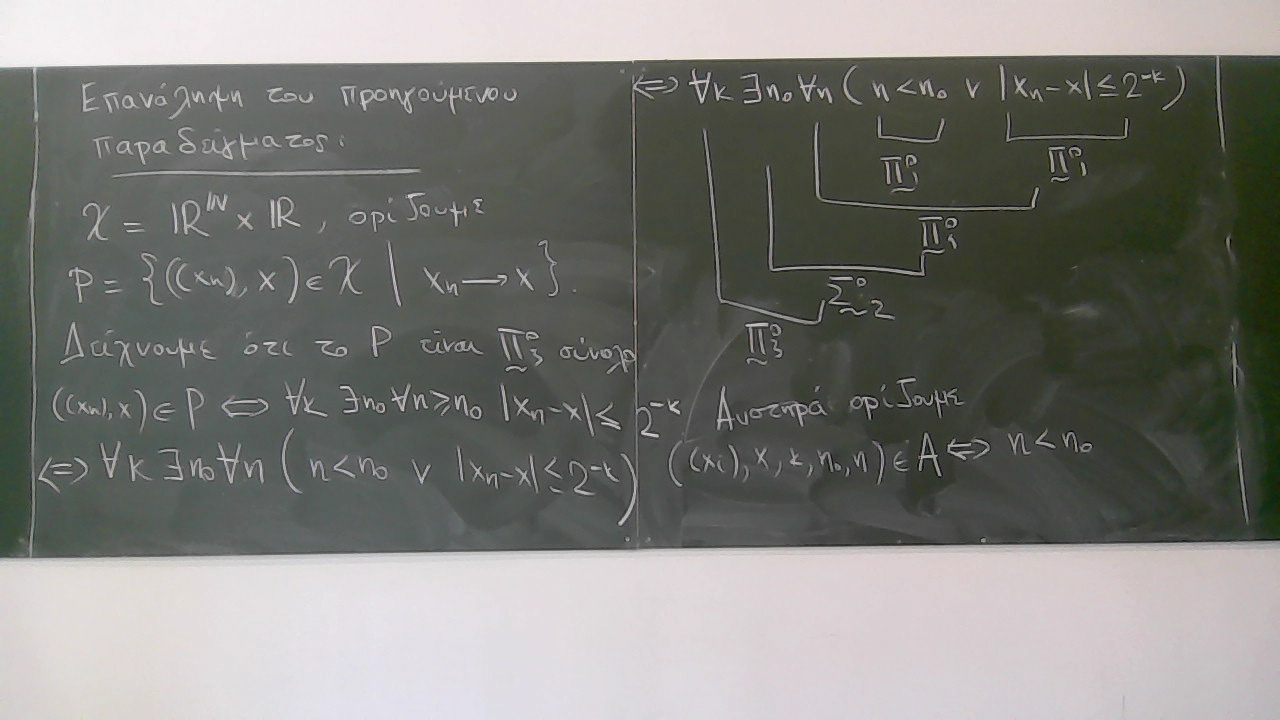 Επανάληψη του προηγούμενου
παραδείγματος:
𝒳 = ℝ^ℕ × ℝ, ορίζουμε
P = {((xₙ), x) ∈ 𝒳 | xₙ ⟶ x}.
Δείχνουμε ότι το P είναι Π̰⁰₃ σύνολο
((xₙ), x) ∈ P ⇔ ∀k ∃n₀ ∀n ≥ n₀ |xₙ - x| ≤ 2^{-k}
⇔ ∀k ∃n₀ ∀n (n < n₀ ∨ |xₙ - x| ≤ 2^{-k})
⇔ ∀k ∃n₀ ∀n (n < n₀ ∨ |xₙ - x| ≤ 2^{-k})
Π̰⁰₁ Π̰⁰₁
Π̰⁰₁
Σ̰⁰₂
Π̰⁰₃
Αυστηρά ορίζουμε
((xᵢ), x, k, n₀, n) ∈ A ⇔ n < n₀